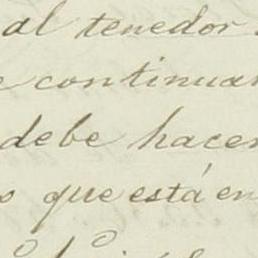 al tenedor
continuar
debe hacer
que está en